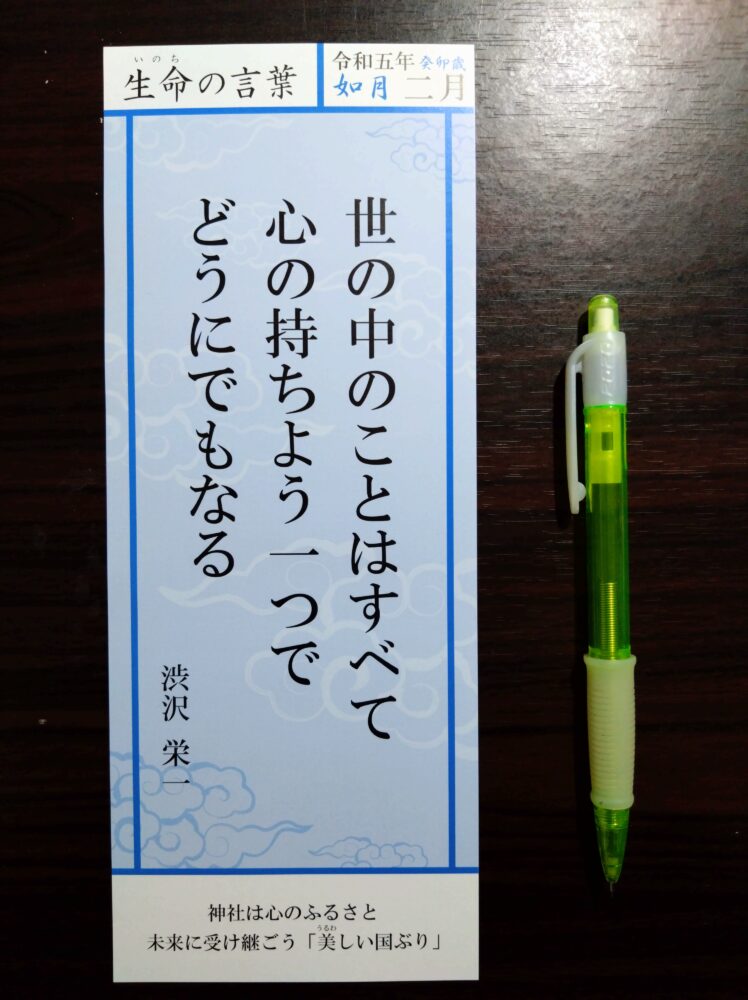 生命の言葉
いのち
令和五年 癸卯歳
如月 二月
世の中のことはすべて
心の持ちよう一つで
どうにでもなる
渋沢 栄一
神社は心のふるさと
未来に受け継ごう「美しい国ぶり」
うるわ